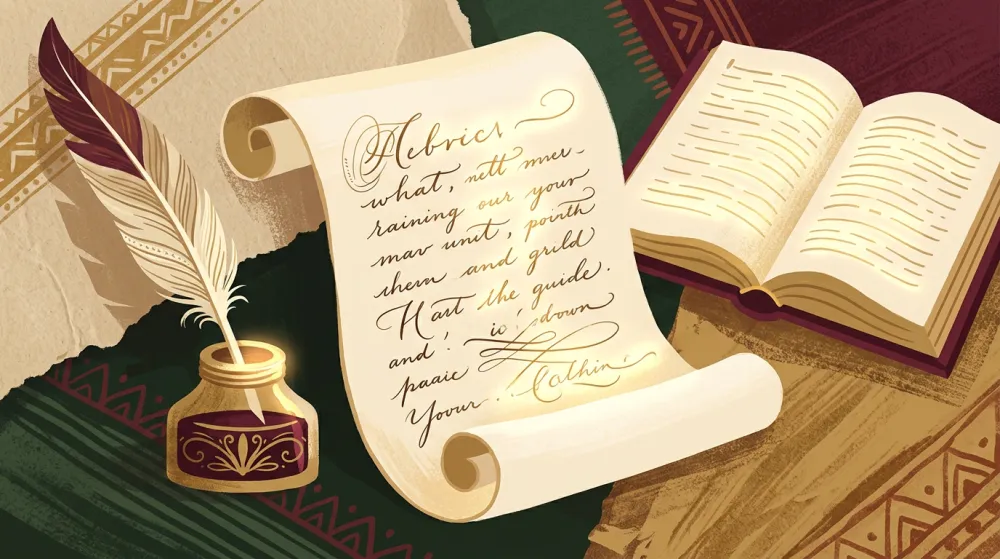 Hebrics
what, nett mer-
raining our your
mav unit, pointh
them and grild
Hart the guide.
and! io' down
paaic Calhin'
Yoour . .